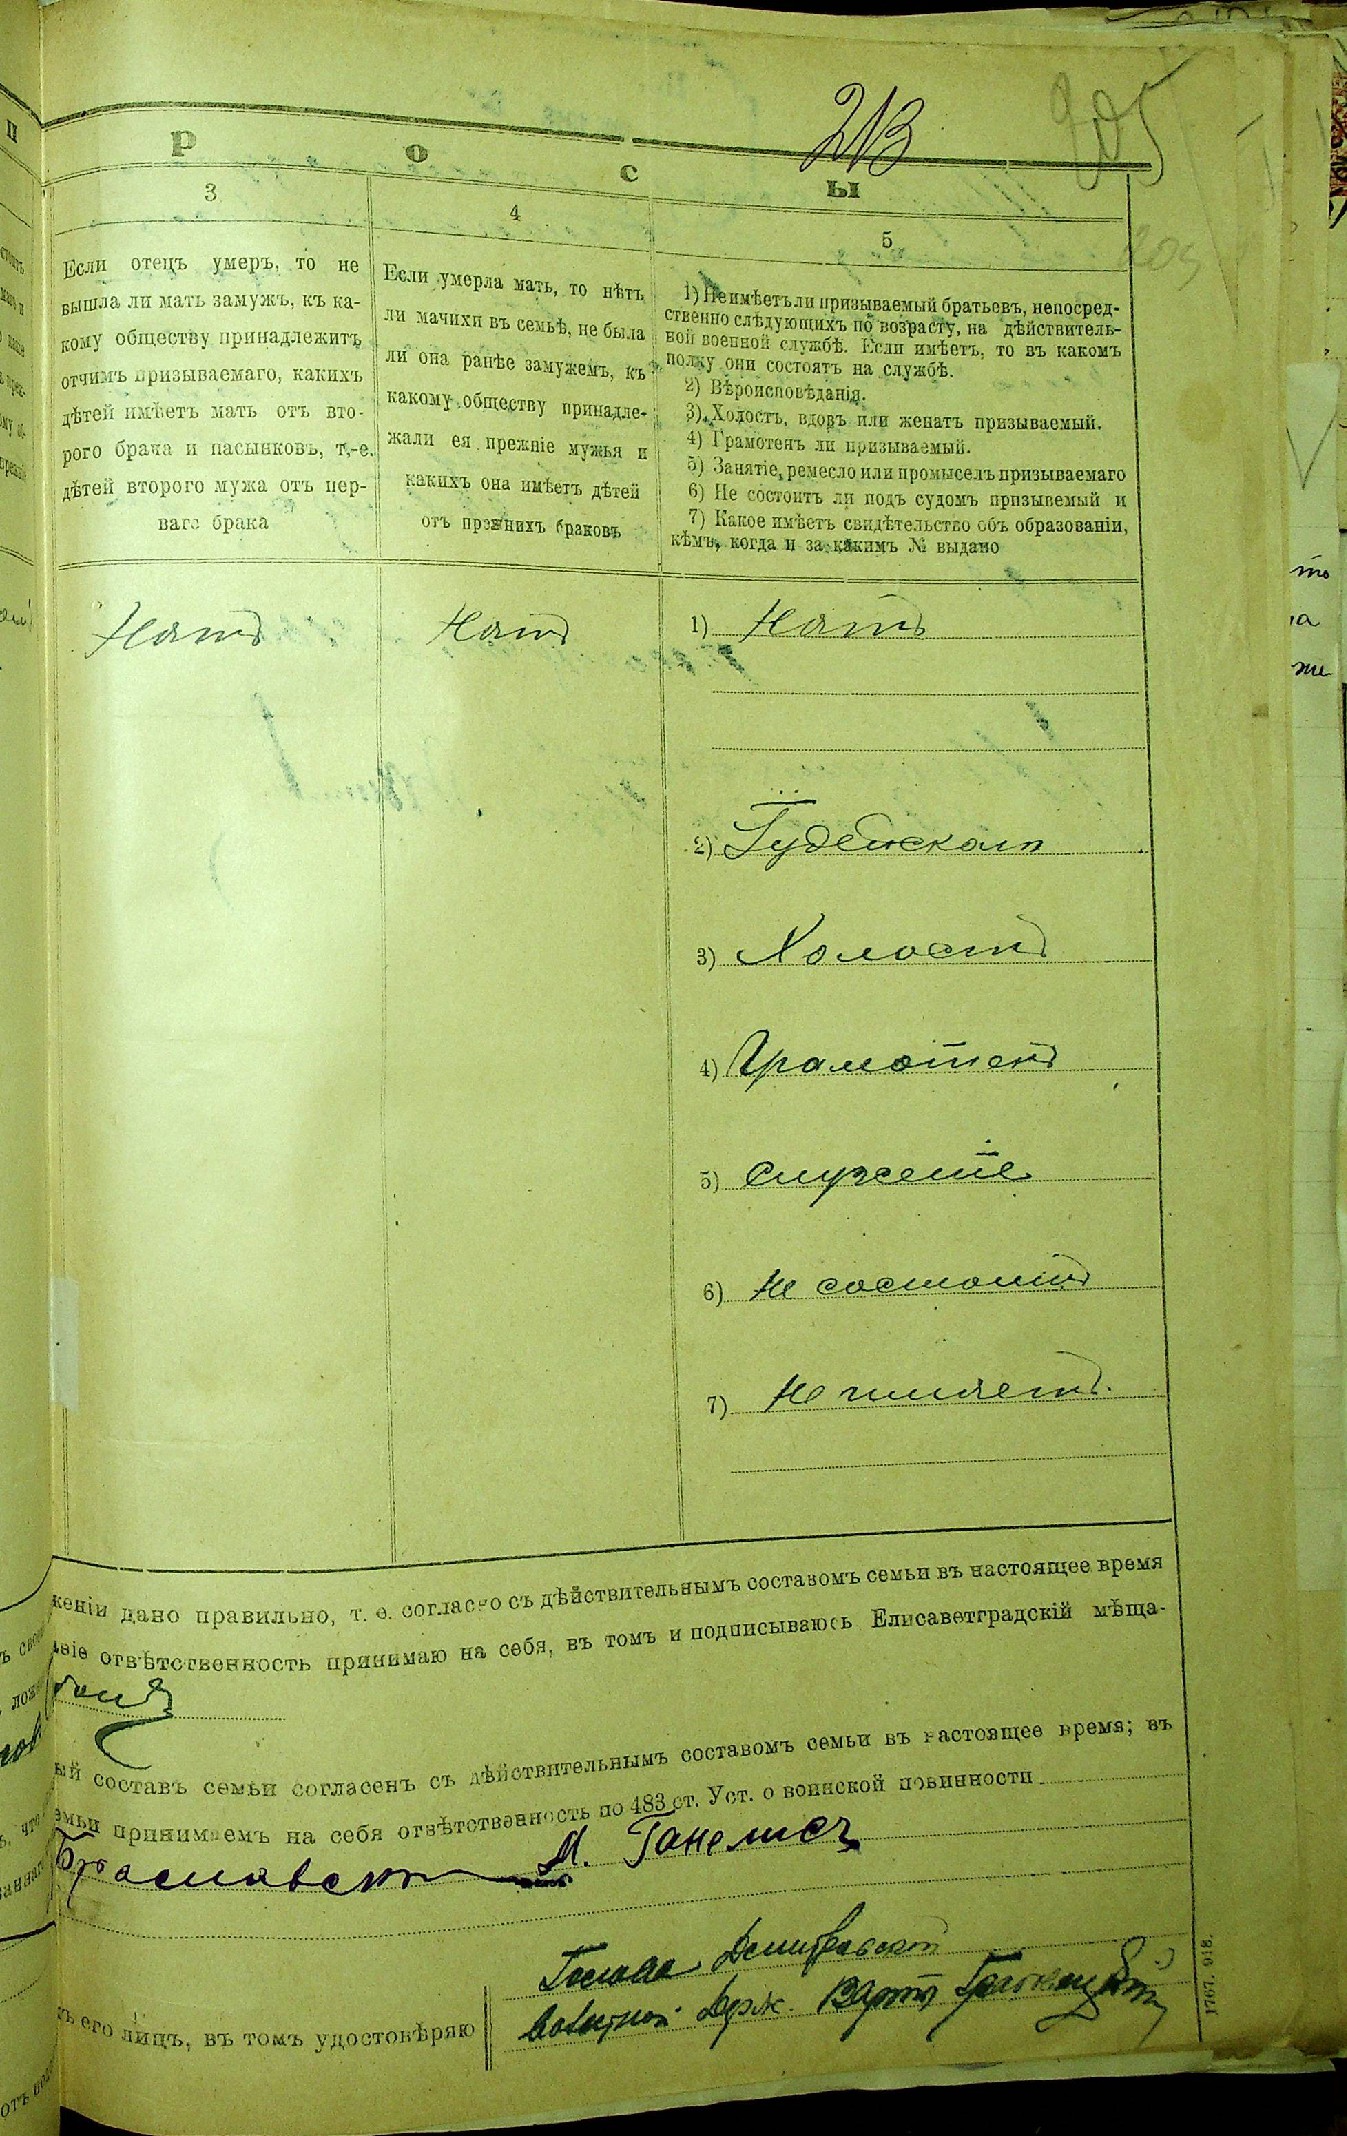 213
205
205
Р О С Ы
3
Если отецъ умеръ, то не
вышла ли мать замужъ, къ ка-
кому обществу принадлежитъ
отчимъ призываемаго, какихъ
дѣтей имѣетъ мать отъ вто-
рого брака и пасынковъ, т.-е.
дѣтей второго мужа отъ пер-
ваго брака
4
Если умерла мать, то нѣтъ
ли мачихи въ семьѣ, не была
ли она ранѣе замужемъ, къ
какому обществу принадле-
жали ея прежніе мужья и
какихъ она имѣетъ дѣтей
отъ прэжнихъ браковъ
5
1) Не имѣетъ ли призываемый братьевъ, непосред-
ственно слѣдующихъ по возрасту, на дѣйствитель-
ной военной службѣ. Если имѣетъ, то въ какомъ
полку они состоятъ на службѣ.
2) Вѣроисповѣданія.
3) Холостъ, вдовъ или женатъ призываемый.
4) Грамотенъ ли призываемый.
5) Занятіе, ремесло или промыселъ призываемаго
6) Не состоитъ ли подъ судомъ призывемый и
7) Какое имѣетъ свидѣтельство объ образованіи,
кѣмъ, когда и за какимъ № выдано
Нѣтъ
Нѣтъ
1) Нѣтъ
2) Іудейскаго
3) Холостъ
4) Грамотенъ
5) Служеніе
6) Не состоитъ
7) Не имѣетъ.
женіи дано правильно, т. е. согласно съ дѣйствительнымъ составомъ семьи въ настоящее время
отвѣтственность принимаю на себя, въ томъ и подписываюсь Елисаветградскій мѣща-
ый составъ семьи согласенъ съ дѣйствительнымъ составомъ семьи въ настоящее время; въ
емьи принимаемъ на себя отвѣтственность по 483 ст. Уст. о воинской повинности
Браславскі М. Ганелисъ
ъ его лицъ, въ томъ удостовѣряю
Голова
Держ. Варты
1767. 918.